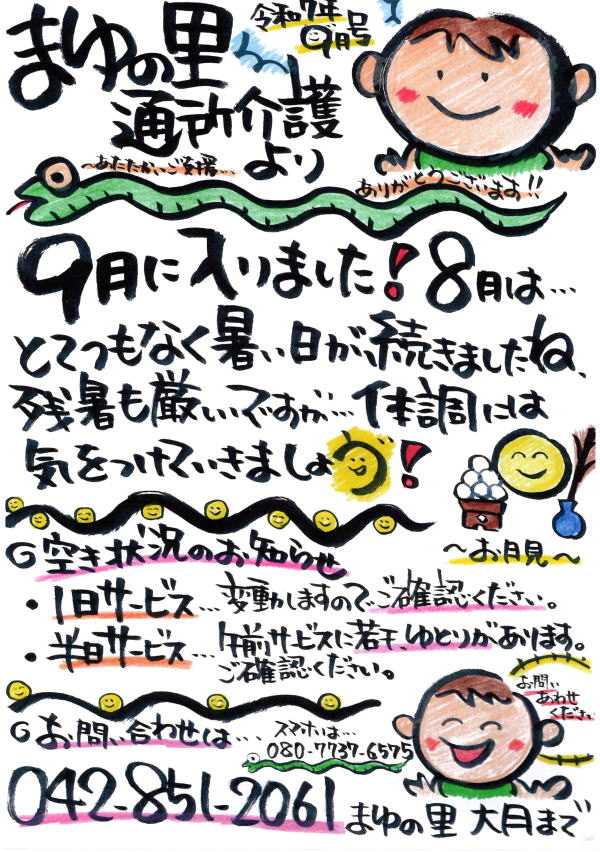 まゆの里
令和7年
9月号
通所介護
より
～あたたかいご支援…
ありがとうございます!!
9月に入りました！8月は…
とてつもなく暑い日が続きましたね、
残暑も厳しいですが…体調には
気をつけていきましょう！
～お月見～
◎空き状況のお知らせ
・1日サービス…変動しますので、ご確認ください。
・半日サービス…午前サービスに若干、ゆとりがあります。
ご確認ください。
お問い
あわせ
ください
◎お問い合わせは…
スマホは…
080-7737-6575
042-851-2061
まゆの里 大月まで